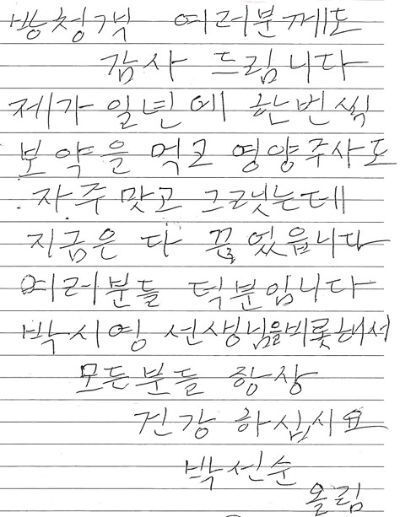 방청객 여러분께도
감사 드립니다
제가 일년에 한번씩
보약을 먹고 영양주사도
자주 맞고 그랫는데
지금은 다 끊었읍니다
여러분들 덕분입니다
박시영 선생님을비롯해서
모든분들 항상
건강 하십시요
박선순
올림